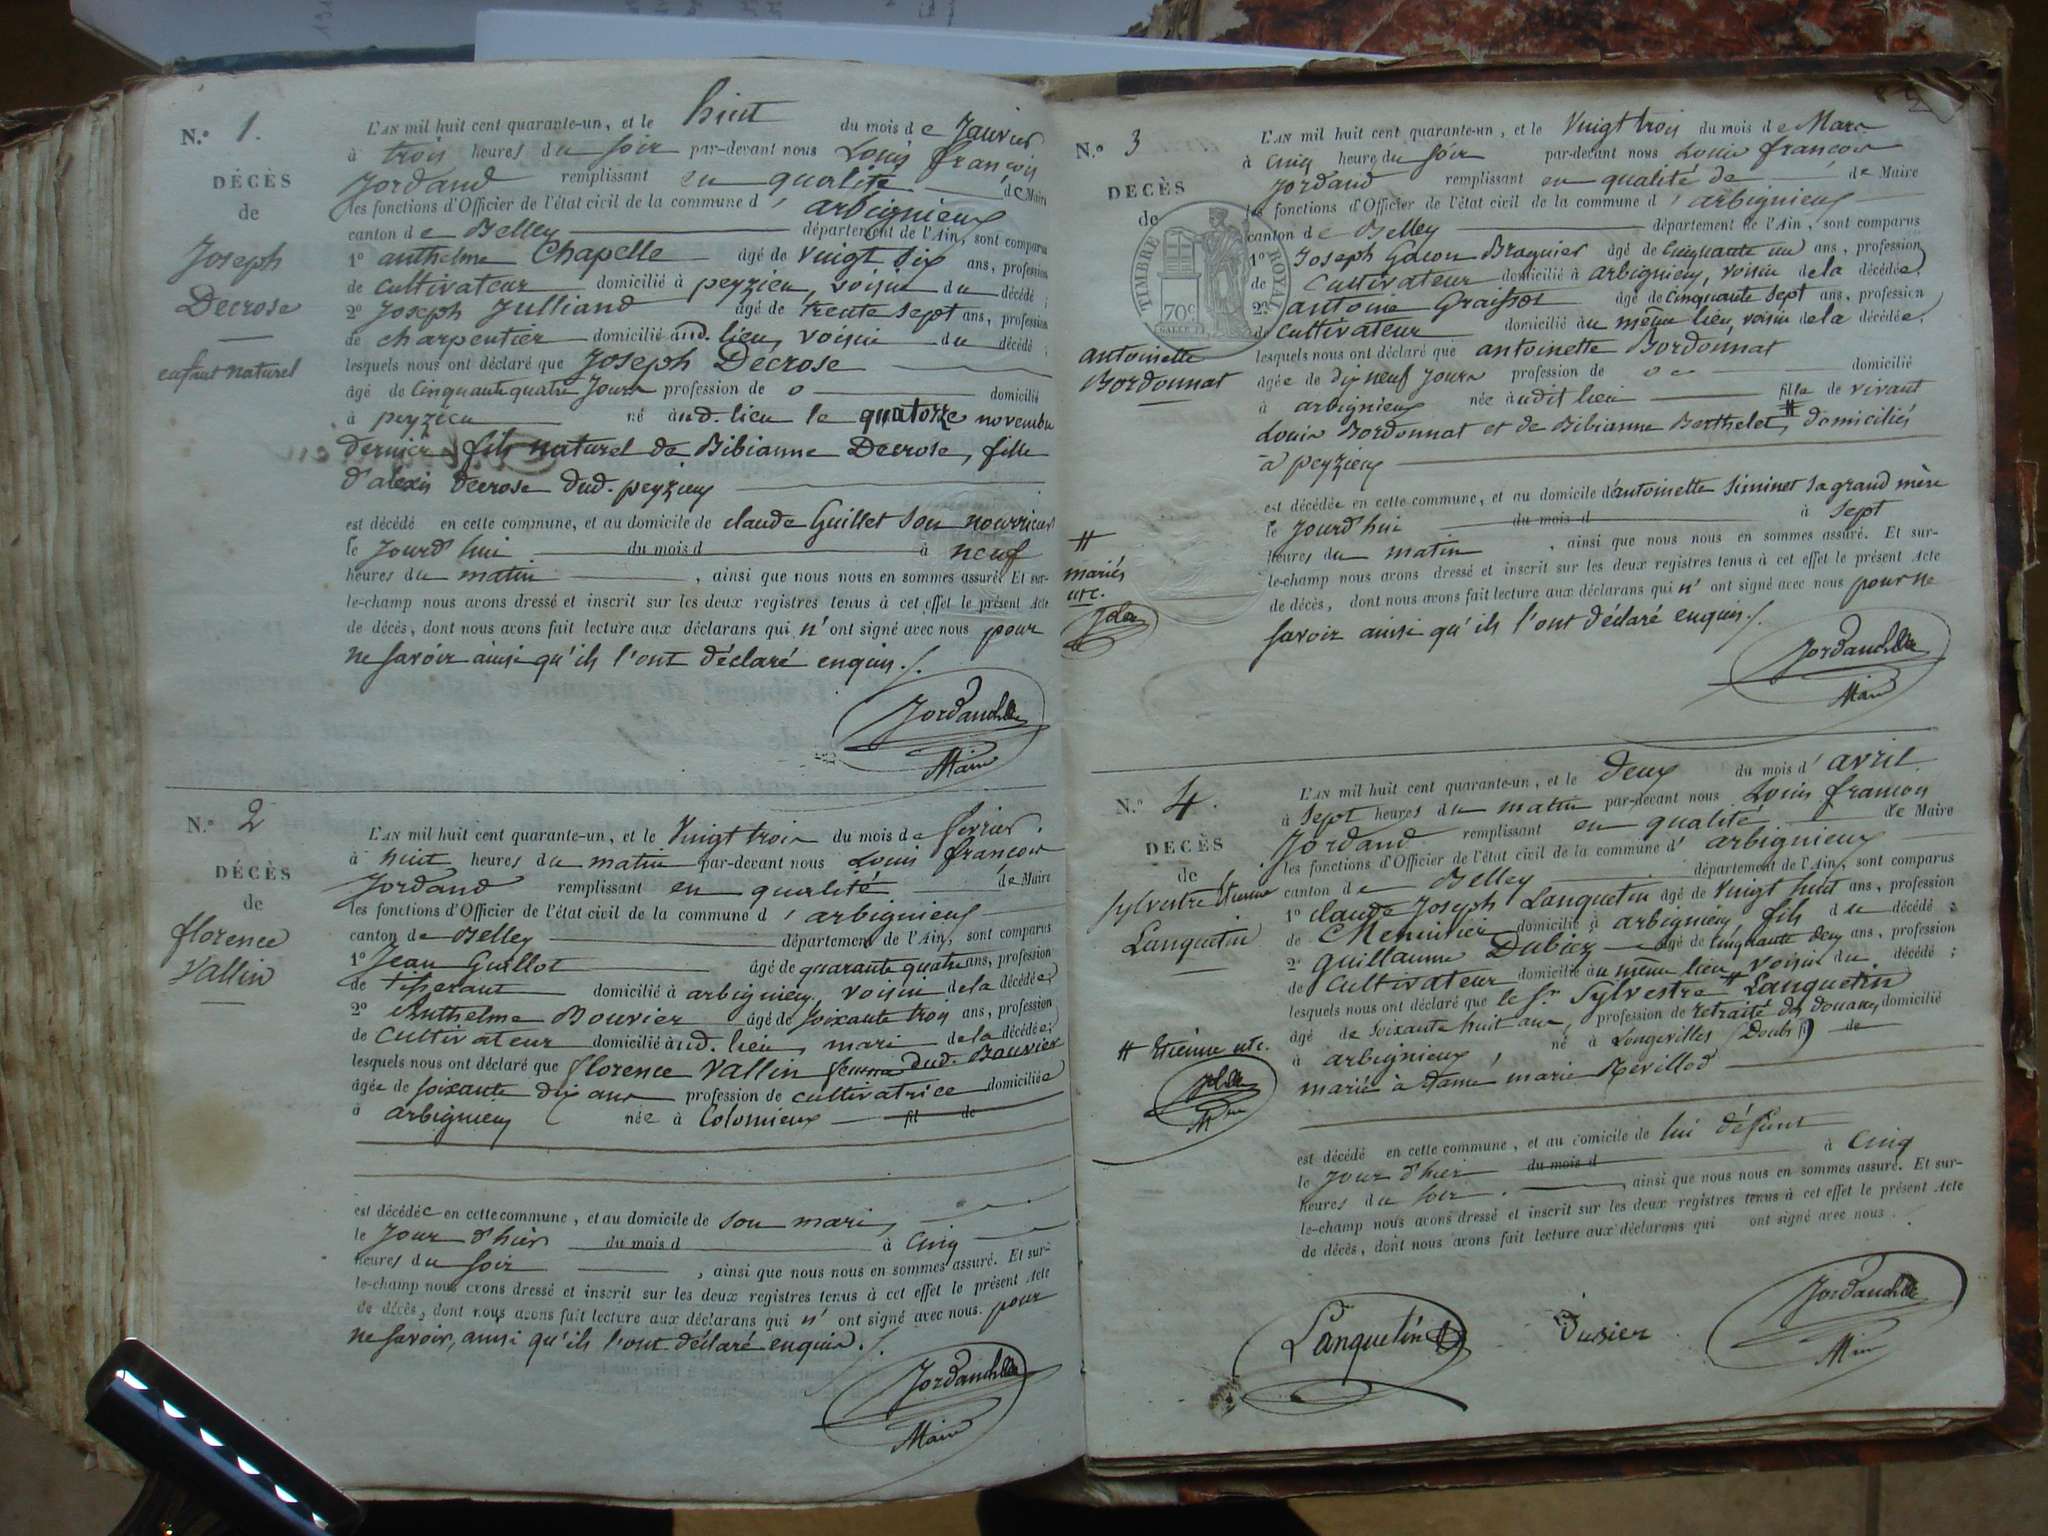 N.º 1.
DÉCÈS
de
Joseph
Decrose
enfant naturel
L'AN mil huit cent quarante-un, et le huit du mois de Janvier
à trois heures du soir par-devant nous Louis françois
Jordand remplissant en qualité de Maire
les fonctions d'Officier de l'état civil de la commune d'arbignieux
canton de Belley département de l'Ain, sont comparus
1º anthelme Chapelle âgé de vingt six ans, profession
de cultivateur domicilié à peyzieu, voisin du décédé ;
2º Joseph Julliand âgé de trente sept ans, profession
de charpentier domicilié aud. lieu, voisin du décédé ;
lesquels nous ont déclaré que Joseph Decrose
âgé de cinquante quatre jours profession de o domicilié
à peyzieu né aud. lieu le quatorze novembre
dernier fils naturel de Bibianne Decrose, fille
d'alexis Decrose dud. peyzieu
est décédé en cette commune, et au domicile de claude Guillet son nourricier
le jourd'hui du mois d à neuf
heures du matin , ainsi que nous nous en sommes assuré. Et sur-
le-champ nous avons dressé et inscrit sur les deux registres tenus à cet effet le présent Acte
de décès, dont nous avons fait lecture aux déclarans qui n'ont signé avec nous pour
ne savoir ainsi qu'ils l'ont déclaré enquis./.
Maire
N.º 2
DÉCÈS
de
florence
Vallin
L'AN mil huit cent quarante-un, et le vingt trois du mois de février,
à huit heures du matin par-devant nous Louis françois
Jordand remplissant en qualité de Maire
les fonctions d'Officier de l'état civil de la commune d'arbignieux
canton de Belley département de l'Ain, sont comparus
1º Jean Guillot âgé de quarante quatre ans, profession
de tisserant domicilié à arbignieu, voisin de la décédée
2º Anthelme Bouvier âgé de soixante trois ans, profession
de cultivateur domicilié aud. lieu, mari de la décédée;
lesquels nous ont déclaré que florence Vallin femme dud. Bouvier
âgée de soixante dix ans profession de cultivatrice domiciliée
à arbignieu née à Colomieux fil de
est décédée en cette commune, et au domicile de son mari,
le jour d'hier du mois d à cinq
heures du soir , ainsi que nous nous en sommes assuré. Et sur-
le-champ nous avons dressé et inscrit sur les deux registres tenus à cet effet le présent Acte
de décès, dont nous avons fait lecture aux déclarans qui n'ont signé avec nous. pour
ne savoir, ainsi qu'ils l'ont déclaré enquis./.
Maire
N.º 3
DÉCÈS
de
antoinette
Bordonnat
TIMBRE ROYAL
70c
L'AN mil huit cent quarante-un, et le vingt trois du mois de Mars
à cinq heure du soir par-devant nous Louis françois
Jordand remplissant en qualité de de Maire
les fonctions d'Officier de l'état civil de la commune d'arbignieux
canton de Belley département de l'Ain, sont comparus
1º Joseph Gacon Braquier âgé de cinquante un ans, profession
de Cultivateur domicilié à arbignieu, voisin de la décédée,
2º antoine Graissot âgé de cinquante sept ans, profession
de cultivateur domicilié au même lieu, voisin de la décédée,
lesquels nous ont déclaré que antoinette Bordonnat
âgée de dix neuf jours profession de domicilié
à arbignieux née audit lieu fille de vivant
Louis Bordonnat et de Bibianne Berthelet, # domiciliés
à peyzieu
est décédée en cette commune, et au domicile d'antoinette Siminet sa grand mère
le jourd'hui du mois d à sept
heures du matin , ainsi que nous nous en sommes assuré. Et sur-
le-champ nous avons dressé et inscrit sur les deux registres tenus à cet effet le présent Acte
de décès, dont nous avons fait lecture aux déclarans qui n'ont signé avec nous pour ne
savoir ainsi qu'ils l'ont déclaré enquis./.
#
mariés
Maire
N.º 4.
DÉCÈS
de
Sylvestre Etienne
Lanquetin
L'AN mil huit cent quarante-un, et le deux du mois d'avril
à sept heures du matin par-devant nous Louis françois
Jordand remplissant en qualité de Maire
les fonctions d'Officier de l'état civil de la commune d'arbignieux
canton de Belley département de l'Ain, sont comparus
1º claude Joseph Lanquetin âgé de vingt huit ans, profession
de Menuisier domicilié à arbignieu, fils du décédé ;
2º Guillaume Dubiez âgé de cinquante deux ans, profession
de Cultivateur domicilié au même lieu, voisin du décédé ;
lesquels nous ont déclaré que le Sr. Sylvestre # Lanquetin
âgé de soixante huit ans, profession de retraité des douanes domicilié
à arbignieux, né à Longevilles (Doubs) de
marié à dame marie Revillod
# Etienne
est décédé en cette commune, et au domicile de lui défunt
le jour d'hier du mois d à cinq
heures du soir , ainsi que nous nous en sommes assuré. Et sur-
le-champ nous avons dressé et inscrit sur les deux registres tenus à cet effet le présent Acte
de décès, dont nous avons fait lecture aux déclarans qui ont signé avec nous.
Lanquetin